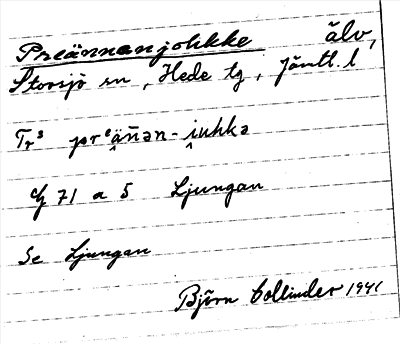 Preännanjohkke älv,
Storsjö sn, Hede tg, Jämtl. l
Tr³ prᵉän̄an-iuhkə
71 a 5 Ljungan
Se Ljungan
Björn Collinder 1941